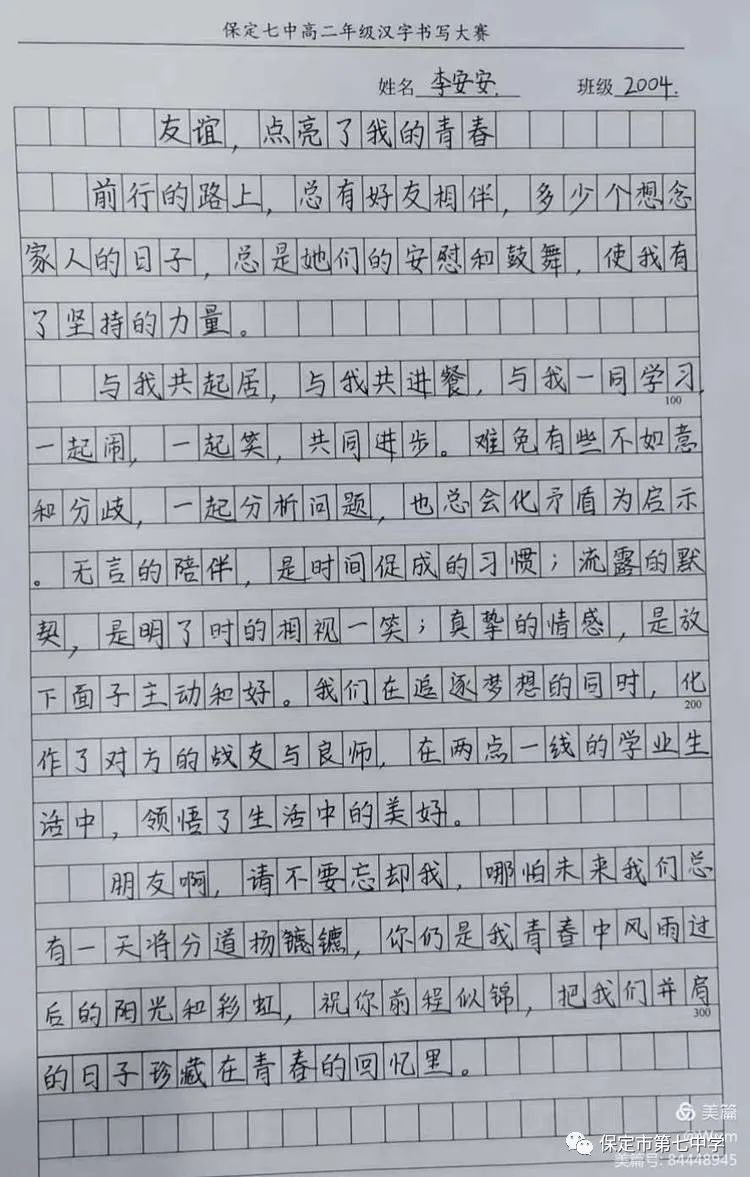 保定七中高二年级汉字书写大赛
姓名 李安安. 班级 2004.
友谊，点亮了我的青春
前行的路上，总有好友相伴，多少个想念
家人的日子，总是她们的安慰和鼓舞，使我有
了坚持的力量。
与我共起居，与我共进餐，与我一同学习，
100
一起闹，一起笑，共同进步。难免有些不如意
和分歧，一起分析问题，也总会化矛盾为启示
。无言的陪伴，是时间促成的习惯；流露的默
契，是明了时的相视一笑；真挚的情感，是放
下面子主动和好。我们在追逐梦想的同时，化
200
作了对方的战友与良师，在两点一线的学业生
活中，领悟了生活中的美好。
朋友啊，请不要忘却我，哪怕未来我们总
有一天将分道扬镳，你仍是我青春中风雨过
后的阳光和彩虹，祝你前程似锦，把我们并肩
300
的日子珍藏在青春的回忆里。
美篇
保定市第七中学
美篇号: 84448945